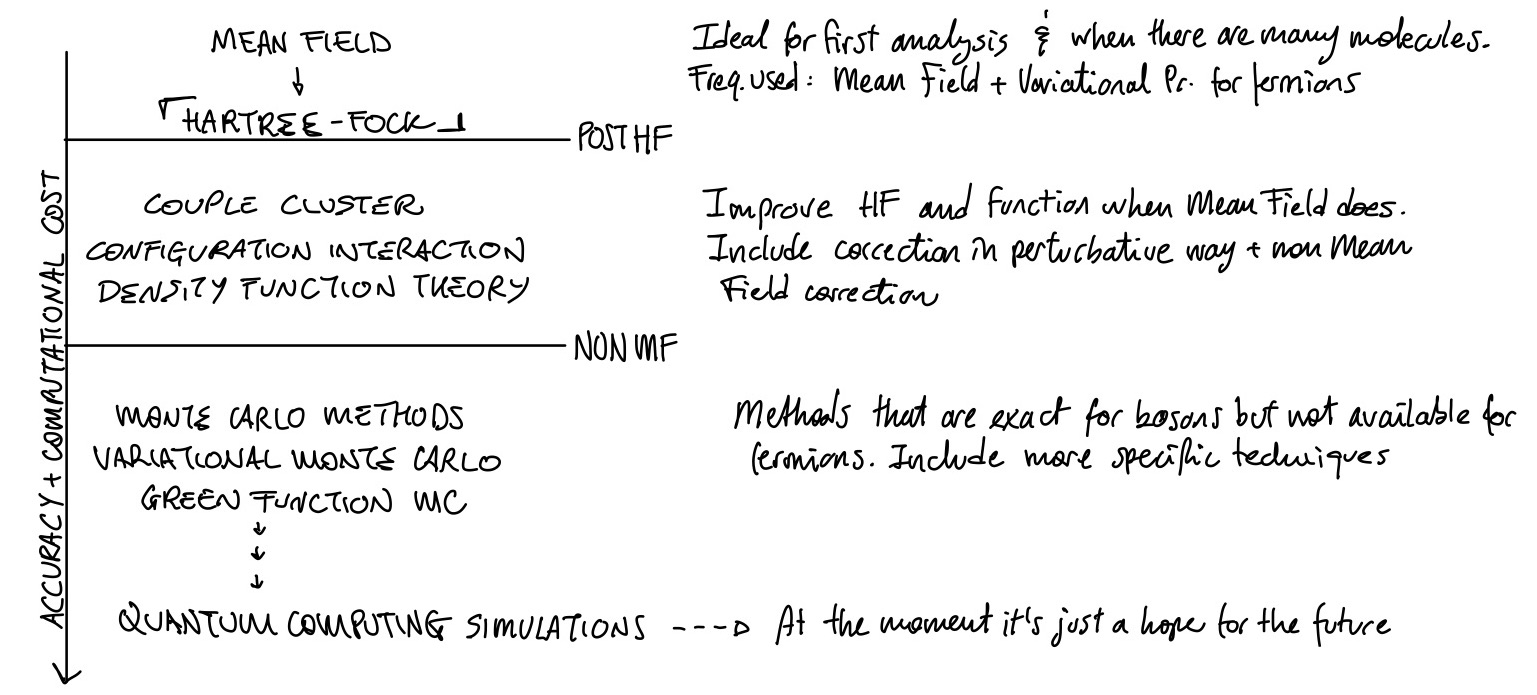 MEAN FIELD
Ideal for first analysis & when there are many molecules.
Freq. used: Mean Field + Variational Pr. for fermions
HARTREE-FOCK
POST HF
COUPLE CLUSTER
CONFIGURATION INTERACTION
DENSITY FUNCTION THEORY
Improve HF and function when Mean Field does.
Include correction in perturbative way + non Mean
Field correction
NON MF
MONTE CARLO METHODS
VARIATIONAL MONTE CARLO
GREEN FUNCTION MC
Methods that are exact for bosons but not available for
fermions. Include more specific techniques
QUANTUM COMPUTING SIMULATIONS ---> At the moment it's just a hope for the future
ACCURACY + COMPUTATIONAL COST